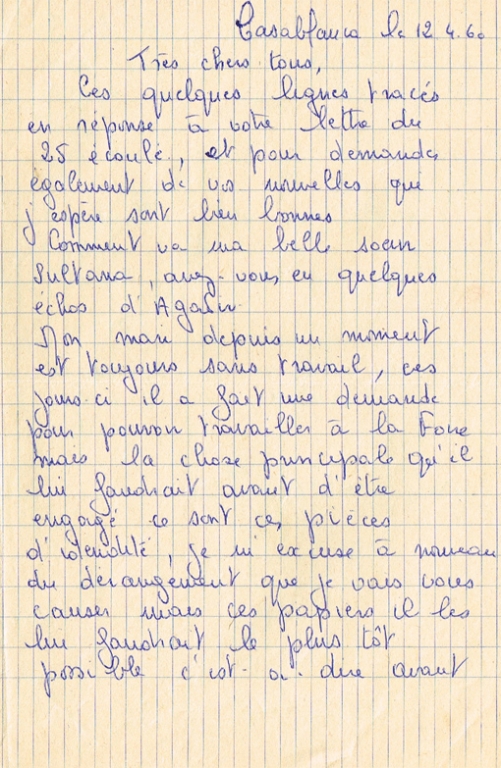 Casablanca le 12.4.60
Très chers tous,
Ces quelques lignes tracés
en réponse à votre lettre du
25 écoulé, et pour demander
également de vos nouvelles que
j'espère sont bien bonnes
Comment va ma belle soeur
Sultana, avez-vous eu quelques
échos d'Agadir.
Mon mari depuis un moment
est toujours sans travail, ces
jours-ci il a fait une demande
pour pouvoir travailler à la Foire
mais la chose principale qu'il
lui faudrait avant d'être
engagé ce sont ces pièces
d'identité, je m'excuse à nouveau
du dérangement que je vais vous
causer mais ces papiers il les
lui faudrait le plus tôt
possible c'est-à-dire avant